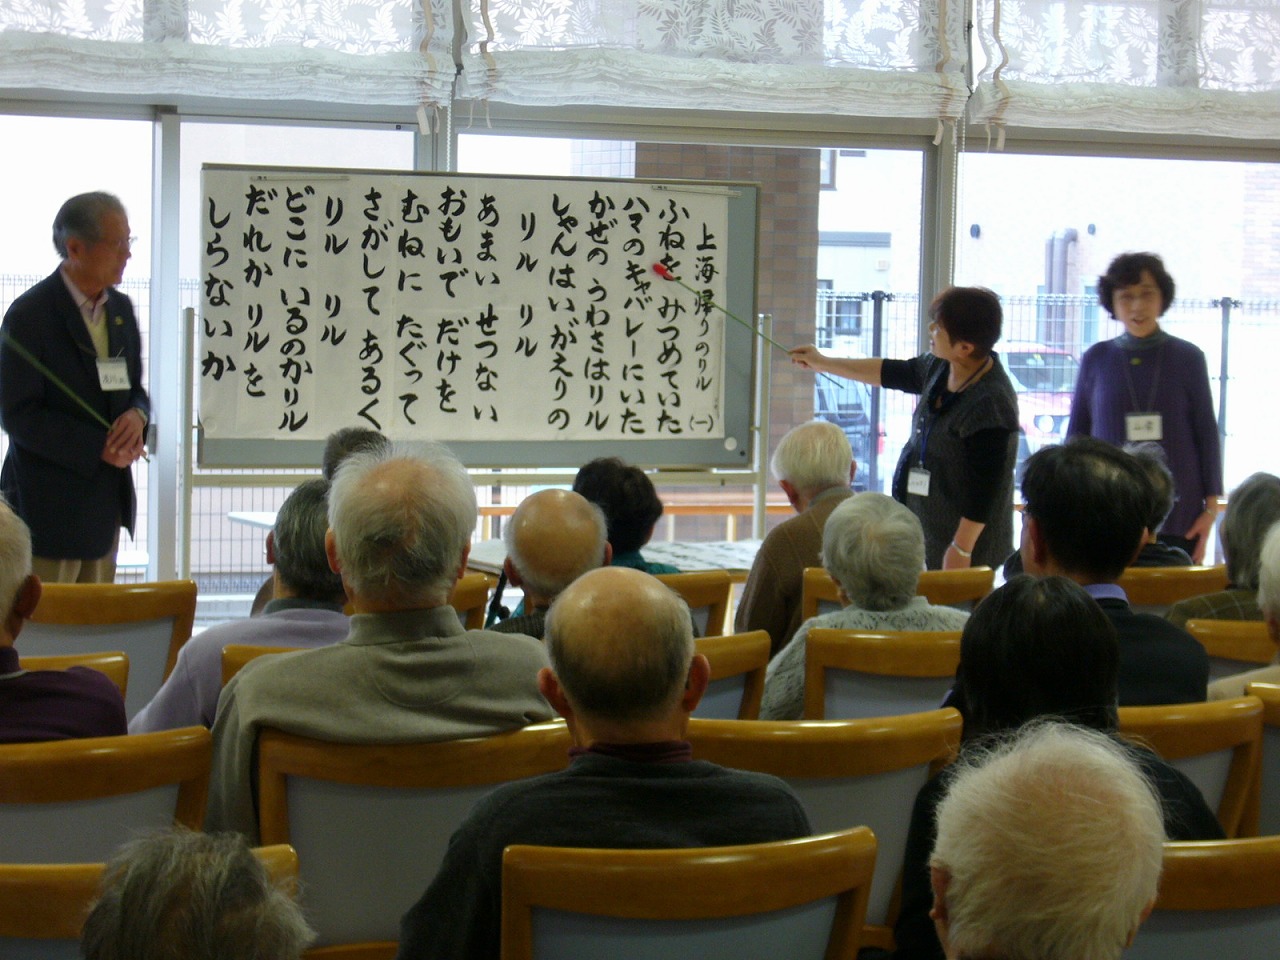 上海帰りのリル (一)
ふねを みつめていた
ハマのキャバレーにいた
かぜの うわさはリル
しゃんはいがえりの
リル リル
あまい せつない
おもいで だけを
むねに たぐって
さがして あるく
リル リル
どこに いるのかリル
だれか リルを
しらないか